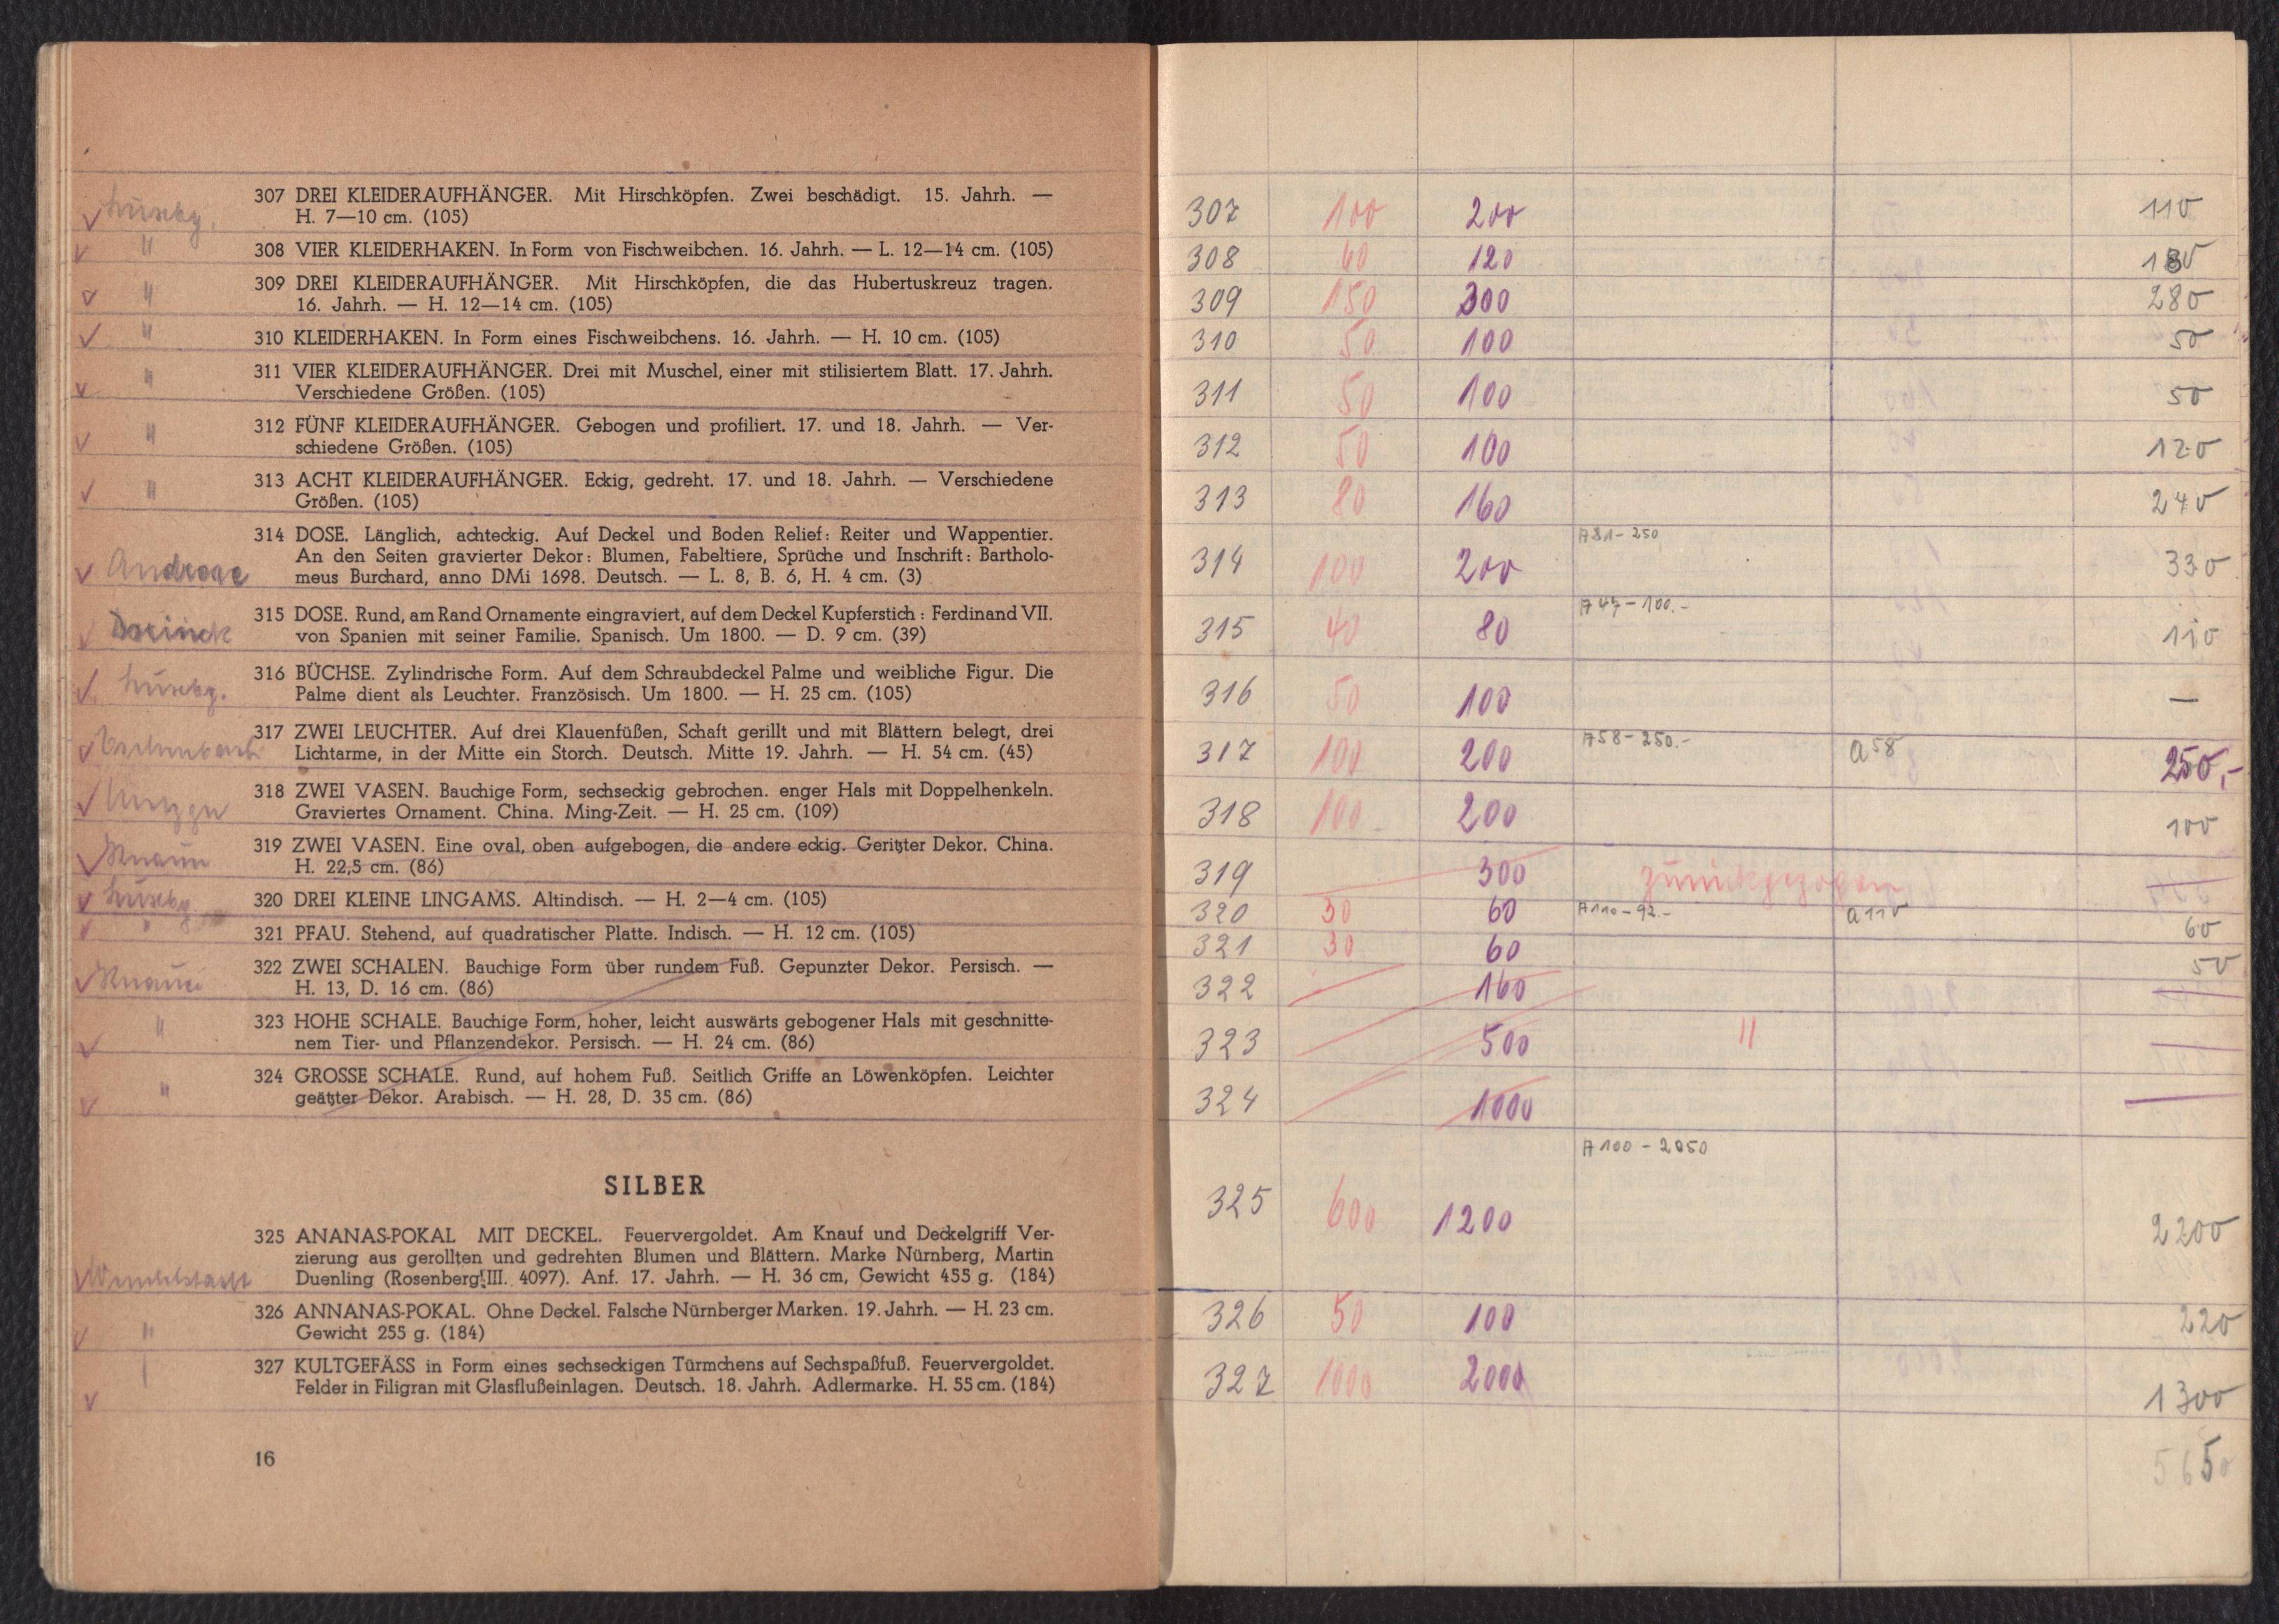 307 DREI KLEIDERAUFHÄNGER. Mit Hirschköpfen. Zwei beschädigt. 15. Jahrh. —
H. 7—10 cm. (105)
" 308 VIER KLEIDERHAKEN. In Form von Fischweibchen. 16. Jahrh. — L. 12—14 cm. (105)
" 309 DREI KLEIDERAUFHÄNGER. Mit Hirschköpfen, die das Hubertuskreuz tragen.
16. Jahrh. — H. 12—14 cm. (105)
" 310 KLEIDERHAKEN. In Form eines Fischweibchens. 16. Jahrh. — H. 10 cm. (105)
" 311 VIER KLEIDERAUFHÄNGER. Drei mit Muschel, einer mit stilisiertem Blatt. 17. Jahrh.
Verschiedene Größen. (105)
" 312 FÜNF KLEIDERAUFHÄNGER. Gebogen und profiliert. 17. und 18. Jahrh. — Ver-
schiedene Größen. (105)
" 313 ACHT KLEIDERAUFHÄNGER. Eckig, gedreht. 17. und 18. Jahrh. — Verschiedene
Größen. (105)
314 DOSE. Länglich, achteckig. Auf Deckel und Boden Relief: Reiter und Wappentier.
An den Seiten gravierter Dekor: Blumen, Fabeltiere, Sprüche und Inschrift: Bartholo-
Andreae meus Burchard, anno DMi 1698. Deutsch. — L. 8, B. 6, H. 4 cm. (3)
315 DOSE. Rund, am Rand Ornamente eingraviert, auf dem Deckel Kupferstich: Ferdinand VII.
von Spanien mit seiner Familie. Spanisch. Um 1800. — D. 9 cm. (39)
316 BÜCHSE. Zylindrische Form. Auf dem Schraubdeckel Palme und weibliche Figur. Die
Palme dient als Leuchter. Französisch. Um 1800. — H. 25 cm. (105)
317 ZWEI LEUCHTER. Auf drei Klauenfüßen, Schaft gerillt und mit Blättern belegt, drei
Lichtarme, in der Mitte ein Storch. Deutsch. Mitte 19. Jahrh. — H. 54 cm. (45)
318 ZWEI VASEN. Bauchige Form, sechseckig gebrochen. enger Hals mit Doppelhenkeln.
Graviertes Ornament. China. Ming-Zeit. — H. 25 cm. (109)
319 ZWEI VASEN. Eine oval, oben aufgebogen, die andere eckig. Geritzter Dekor. China.
H. 22,5 cm. (86)
320 DREI KLEINE LINGAMS. Altindisch. — H. 2—4 cm. (105)
" 321 PFAU. Stehend, auf quadratischer Platte. Indisch. — H. 12 cm. (105)
322 ZWEI SCHALEN. Bauchige Form über rundem Fuß. Gepunzter Dekor. Persisch. —
H. 13, D. 16 cm. (86)
" 323 HOHE SCHALE. Bauchige Form, hoher, leicht auswärts gebogener Hals mit geschnitte-
nem Tier- und Pflanzendekor. Persisch. — H. 24 cm. (86)
" 324 GROSSE SCHALE. Rund, auf hohem Fuß. Seitlich Griffe an Löwenköpfen. Leichter
geätzter Dekor. Arabisch. — H. 28, D. 35 cm. (86)
SILBER
325 ANANAS-POKAL MIT DECKEL. Feuervergoldet. Am Knauf und Deckelgriff Ver-
zierung aus gerollten und gedrehten Blumen und Blättern. Marke Nürnberg, Martin
Duenling (Rosenberg III. 4097). Anf. 17. Jahrh. — H. 36 cm, Gewicht 455 g. (184)
326 ANNANAS-POKAL. Ohne Deckel. Falsche Nürnberger Marken. 19. Jahrh. — H. 23 cm.
" Gewicht 255 g. (184)
327 KULTGEFÄSS in Form eines sechseckigen Türmchens auf Sechspaßfuß. Feuervergoldet.
Felder in Filigran mit Glasflußeinlagen. Deutsch. 18. Jahrh. Adlermarke. H. 55 cm. (184)
16
307 100 200 110
308 60 120
309 150 300 280
310 50 100 50
311 50 100 50
312 50 100 120
313 80 160 240
A81-250
314 100 200 330
A47-100.-
315 40 80 110
316 50 100 —
A58-250.-
317 100 200 a58 250,-
318 100 200 100
319 300 zurückgezogen —
A110-92.-
320 30 60 a110 60
321 30 60 50
322 160 —
323 500 " —
324 1000 —
A100-2050
325 600 1200 2200
326 50 100 220
327 1000 2000 1300
5650